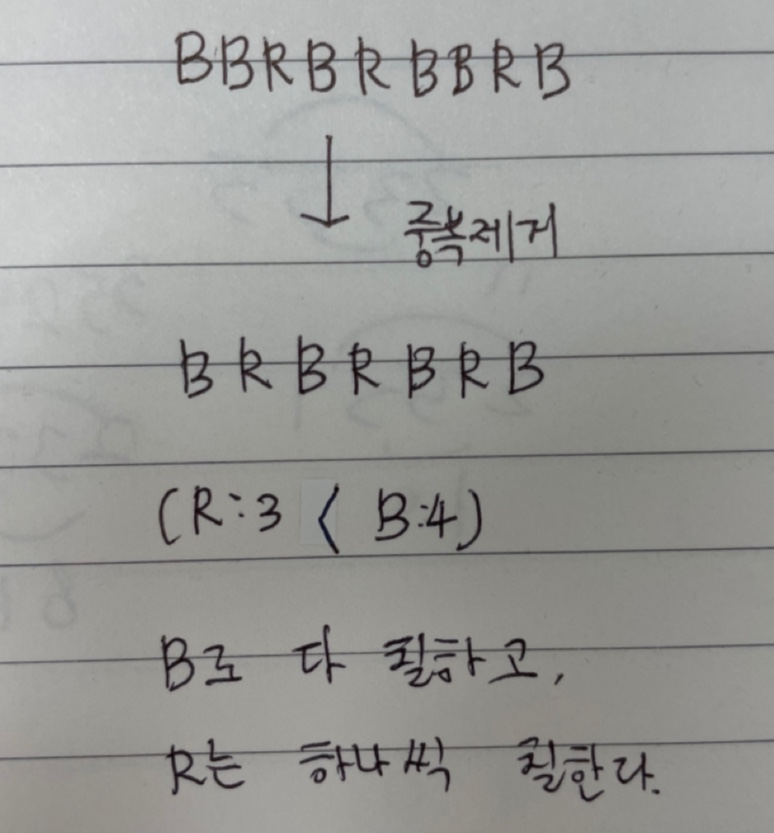 BBRBRBBRB
중복제거
BRBRBRB
(R:3 < B:4)
B로 다 칠하고,
R는 하나씩 칠한다.